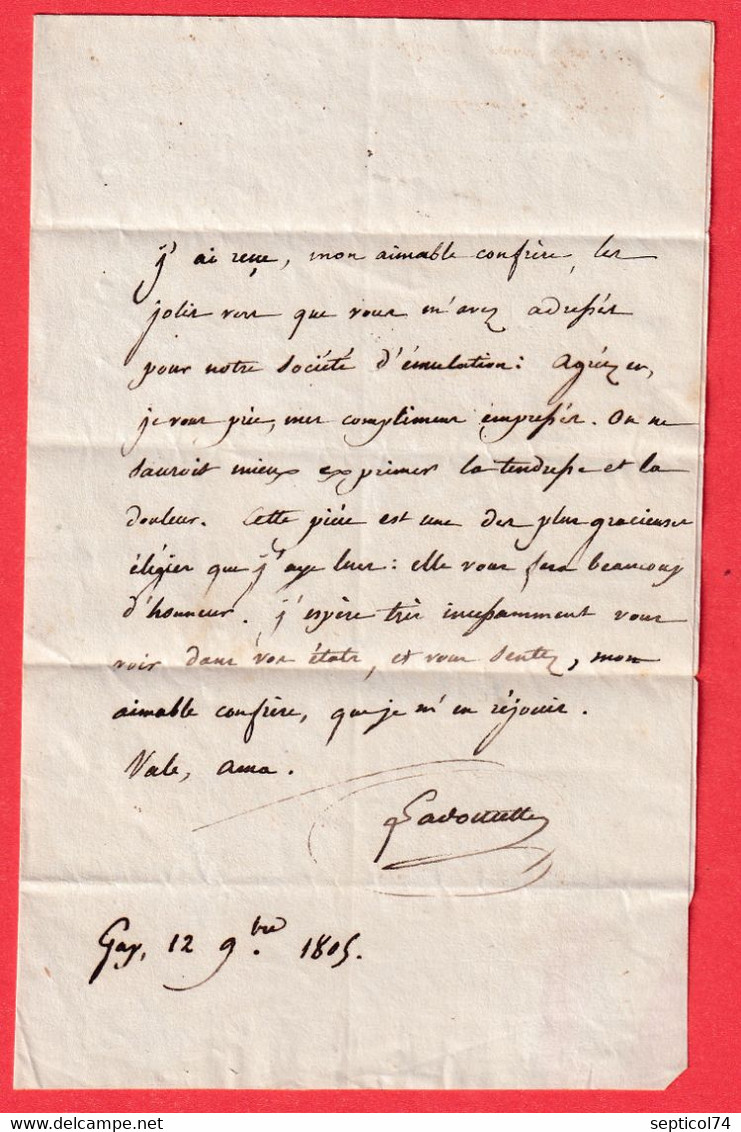 j'ai reçu, mon aimable confrère, les
jolis vers que vous m'avez adressés
pour notre société d'émulation : Agréez en,
je vous prie, mes complimens empressés. On ne
sauroit mieux exprimer la tendresse et la
douleur. Cette pièce est une des plus gracieuses
élégies que j'aye lues : elle vous fera beaucoup
d'honneur. j'espère très incessamment vous
voir dans vos états, et vous sentez, mon
aimable confrère, que je m'en réjouis.
Vale, ama.
Ladoucette
Gap, 12 9.bre 1805.
septicol74